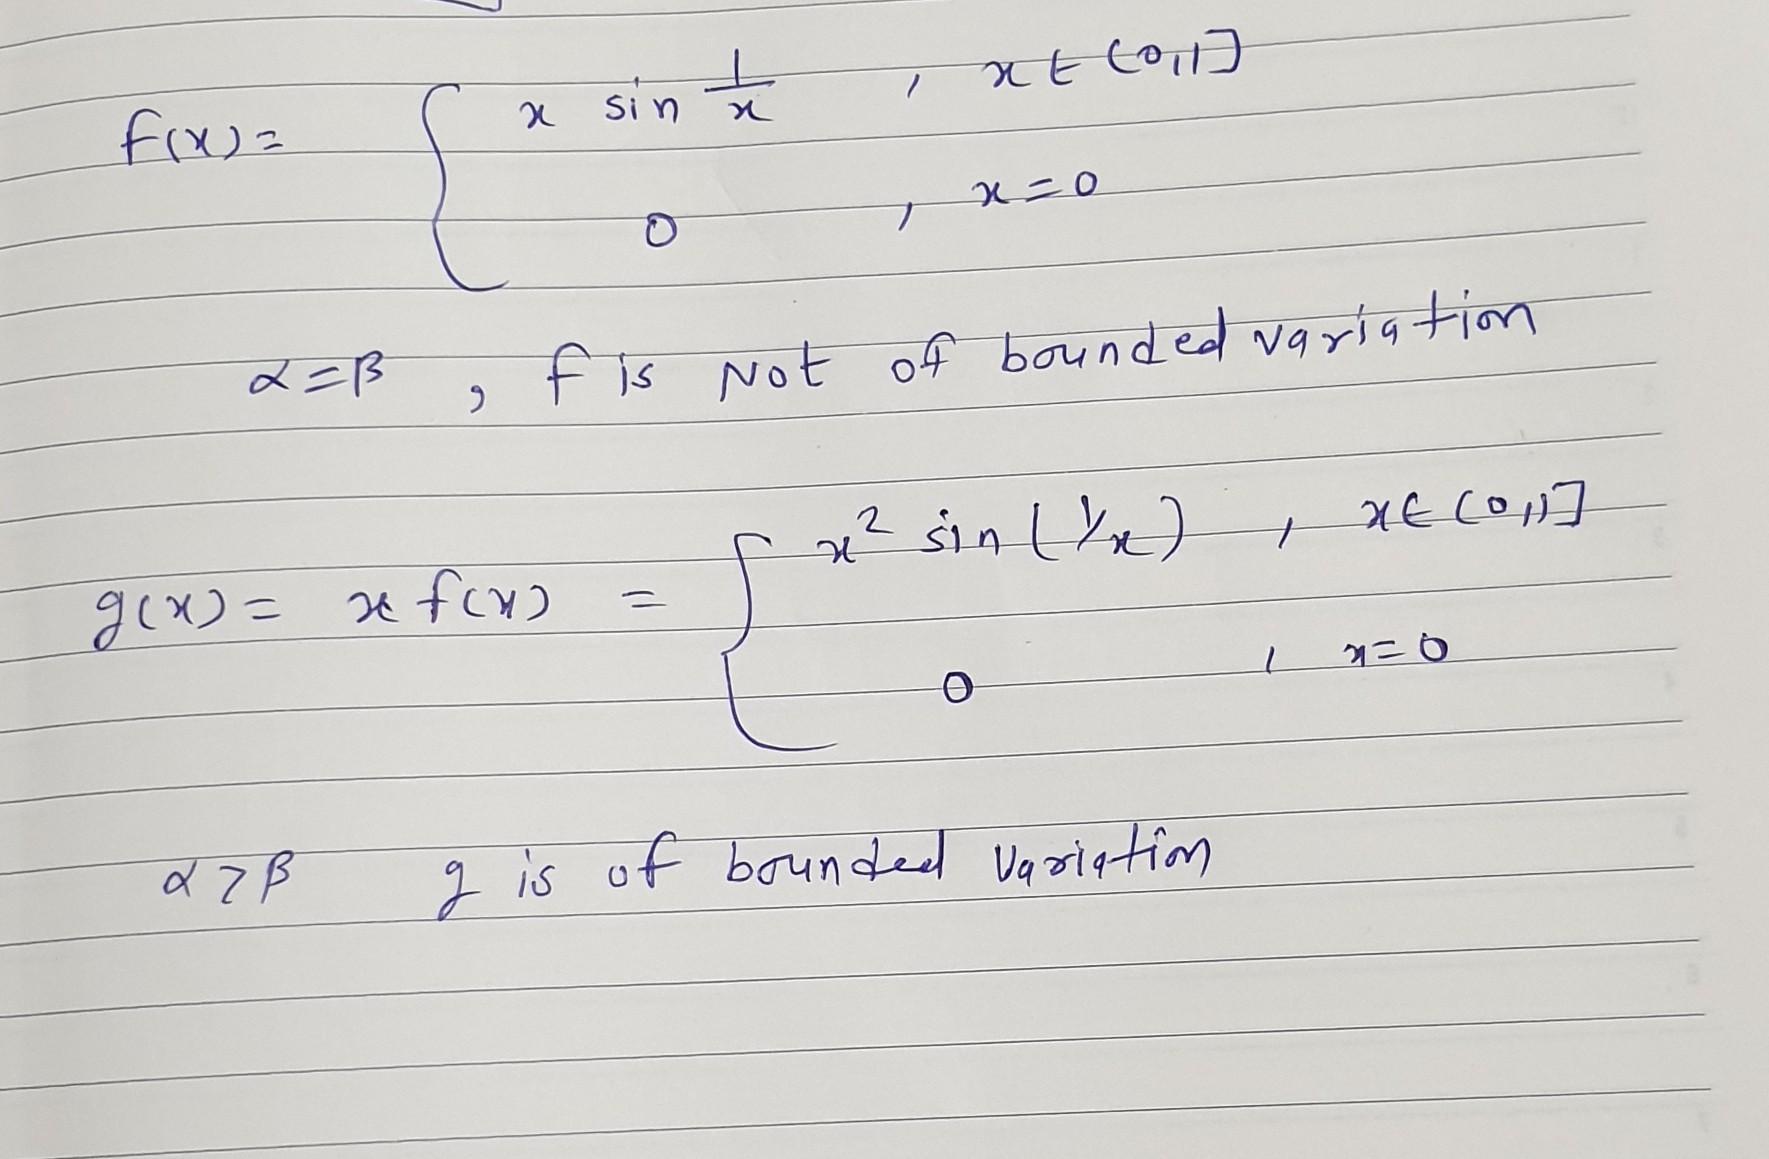 f(x) = { x sin 1/x , x ∈ (0,1]
0 , x = 0
α = β , f is Not of bounded variation
g(x) = x f(x) = { x² sin (1/x) , x ∈ (0,1]
0 , x = 0
α > β g is of bounded variation